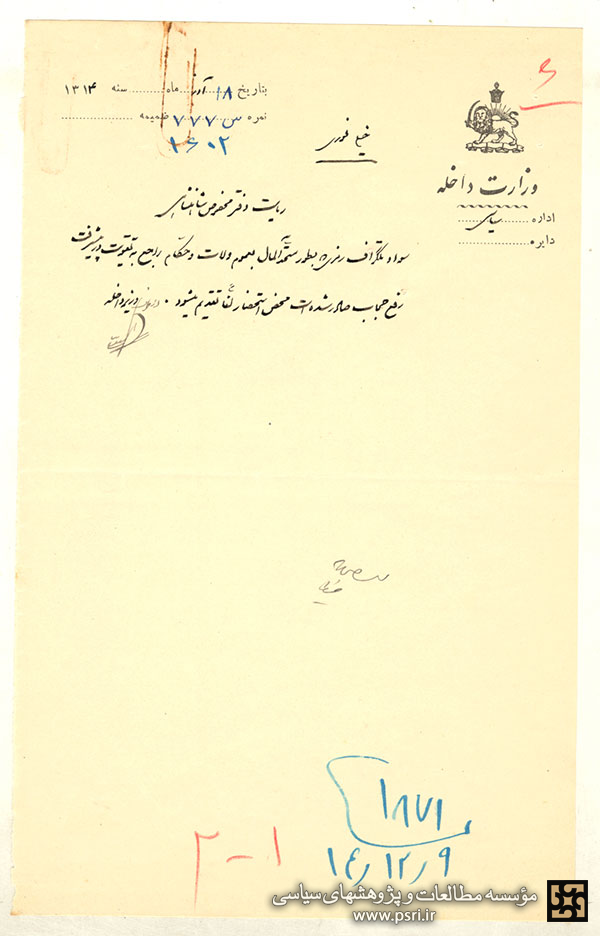 بتاریخ ۱۸ آذر ماه سنه ۱۳۱۴
نمره س ۷۷۷ ضمیمه
۱۶۰۲
خیلی فوری
وزارت داخله
اداره سیاسی
دایره
ریاست دفتر مخصوص شاهنشاهی
سواد تلگراف رمزی که بطور متحدالمال بعموم ولات و حکام راجع به تقویت در پیشرفت
رفع حجاب صادر شده است محض استحضار لفاً تقدیم میشود. وزیر داخله
۱۸۷۱
۱۴/۱۲/۹
۲-۱
مؤسسه مطالعات و پژوهشهای سیاسی
www.psri.ir